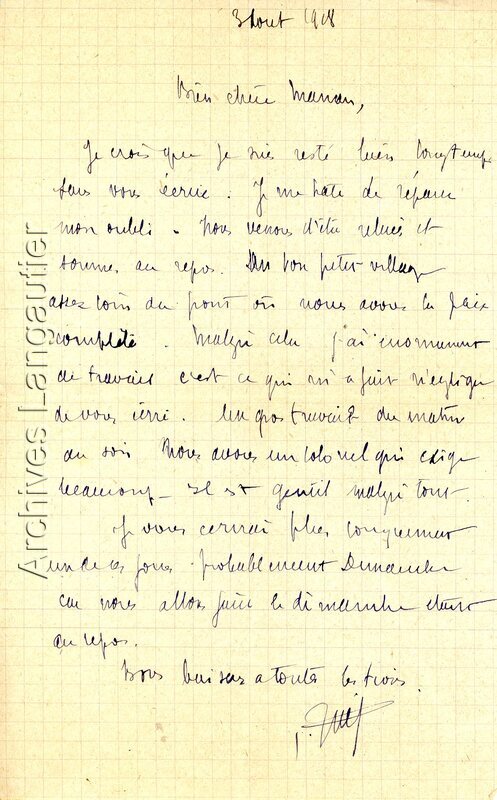 3 Aout 1918
Bien chère Maman,
Je crois que je suis resté bien longtemps
sans vous écrire. Je me hate de réparer
mon oubli. Nous venons d'être relevés et
sommes au repos. Un bon petit village
assez loin du front où nous avons la paix
complète. Malgré cela j'ai énormement
de travail c'est ce qui m'a fait négliger
de vous écrire. Un gros travail du matin
au soir Nous avons un colonel qui exige
beaucoup _ Il est gentil malgré tout.
Je vous écrirai plus longuement
un de ces jours probablement Dimanche
car nous allons faire le dimanche étant
au repos.
Bons baisers a toutes les trois.
Archives Langautier